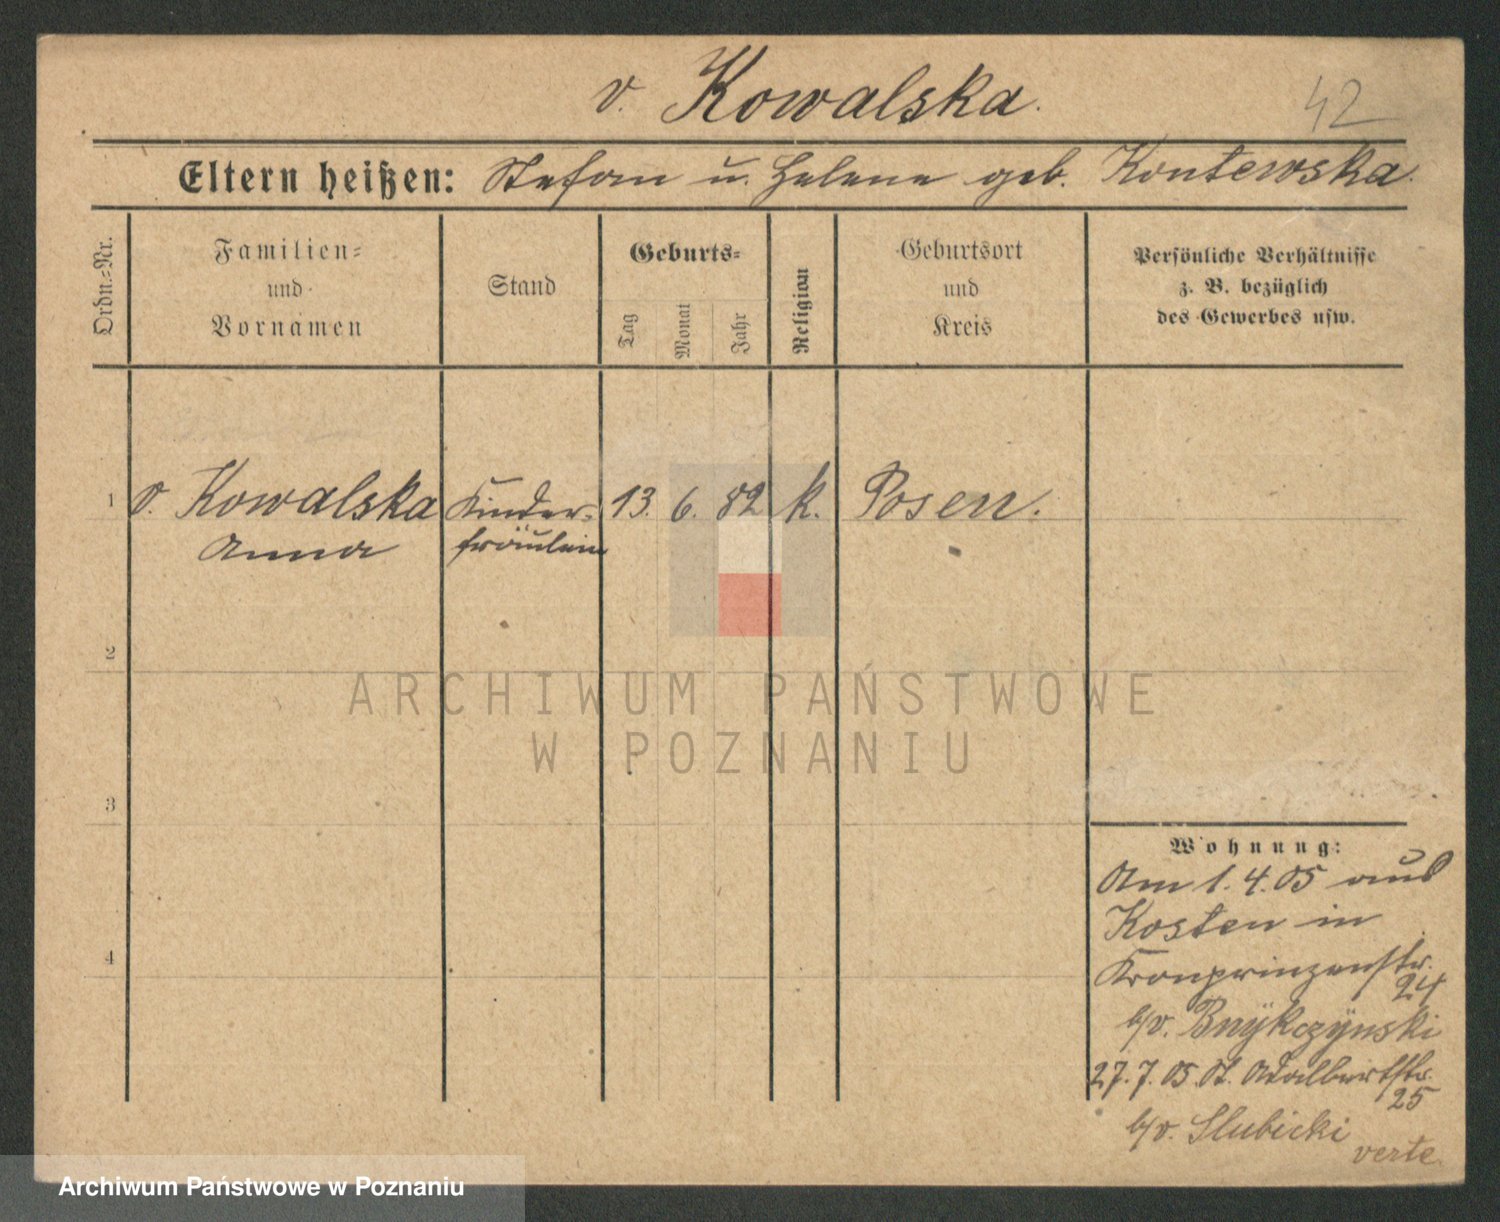 v. Kowalska.
42
Eltern heißen: Stefan u. Helene geb. Kontewska.
Ordn.=Nr.
Familien=
und
Vornamen
Stand
Geburts=
Tag
Monat
Jahr
Religion
Geburtsort
und
Kreis
Persönliche Verhältnisse
z. B. bezüglich
des Gewerbes usw.
1 v. Kowalska Kinder= 13. 6. 82 k. Posen.
Anna fräulein
2
ARCHIWUM PAŃSTWOWE
W POZNANIU
3
Wohnung:
Am 1. 4. 05 aus
Kosten in
4
Kronprinzenstr.
24
b/v. Bnÿkczÿnski
27. 7. 05 St. Adalbertstr.
25
b/v. Slubicki
verte
Archiwum Państwowe w Poznaniu